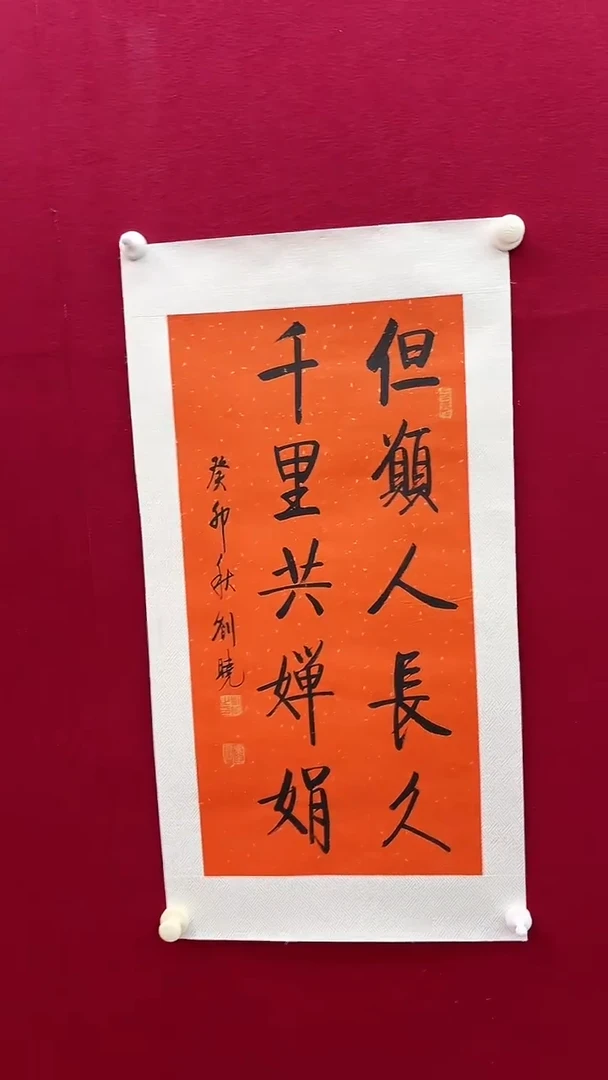 但願人長久
千里共嬋娟
癸卯秋創曉